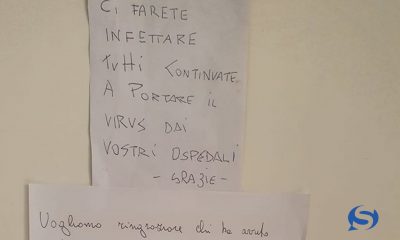 CI FARETE
INFETTARE
TUTTI CONTINUATE
A PORTARE IL
VIRUS DAI
VOSTRI OSPEDALI
- GRAZIE -
Vogliamo ringraziare chi ha avuto